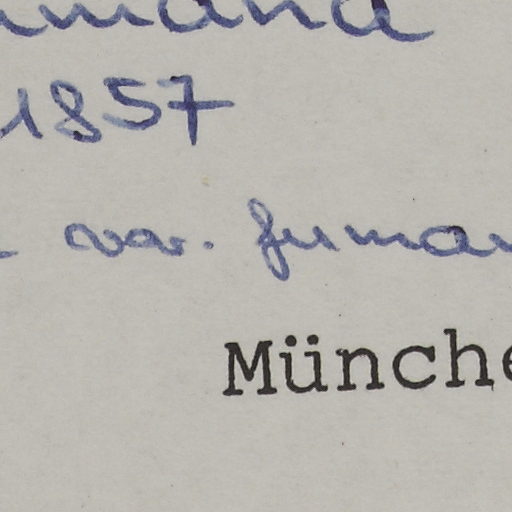 umana
1857
var. fuman
Münche